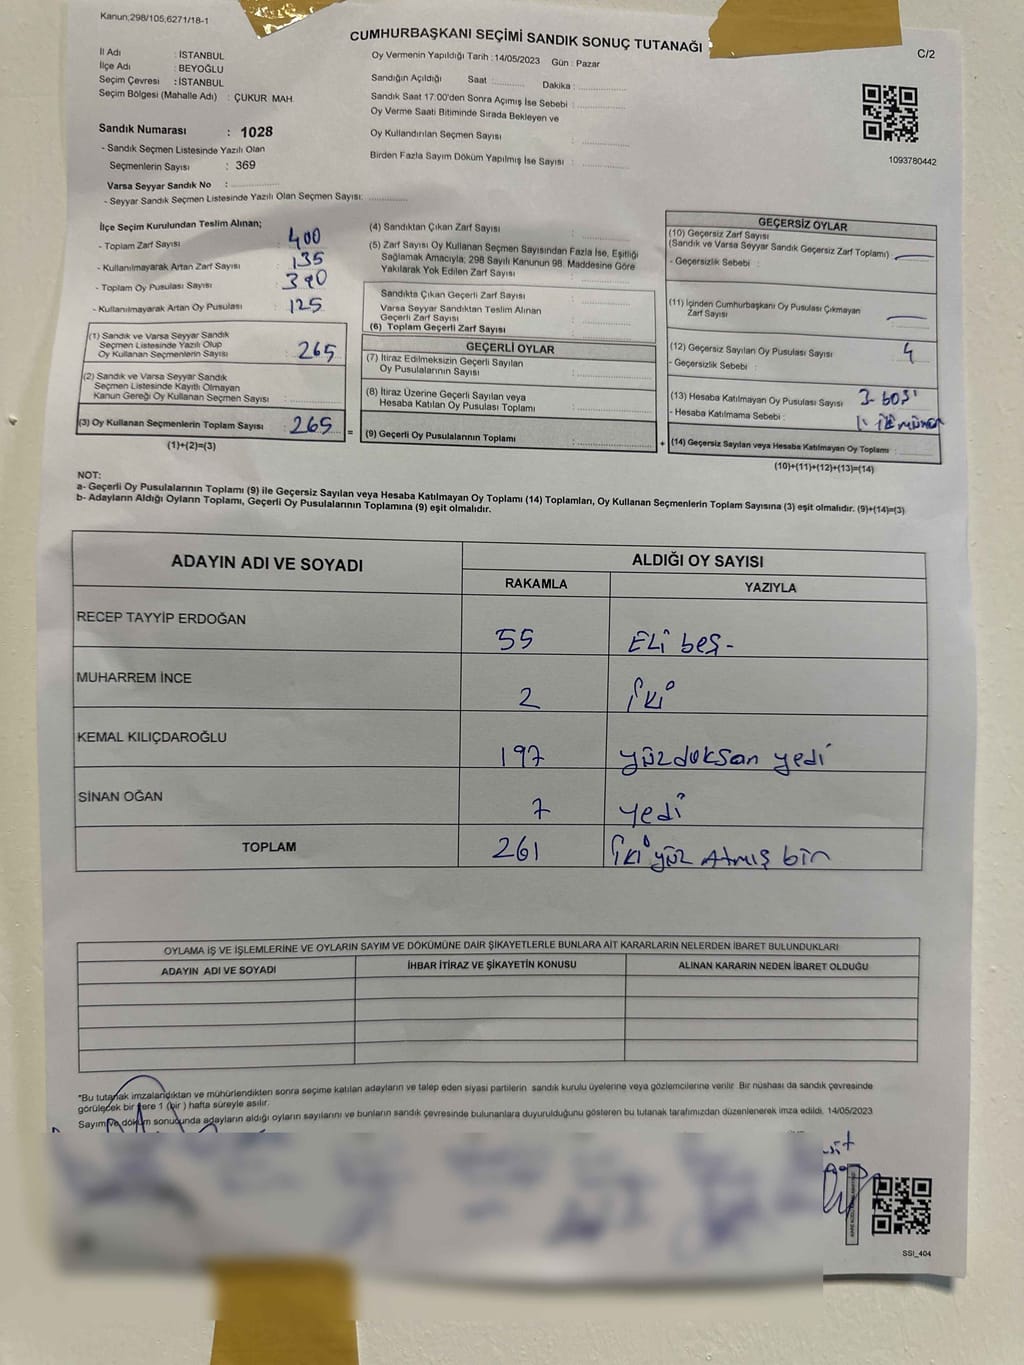 Kanun;298/105;6271/18-1
CUMHURBAŞKANI SEÇİMİ SANDIK SONUÇ TUTANAĞI
C/2
İl Adı : İSTANBUL
İlçe Adı : BEYOĞLU
Seçim Çevresi : İSTANBUL
Seçim Bölgesi (Mahalle Adı) : ÇUKUR MAH.
Oy Vermenin Yapıldığı Tarih : 14/05/2023 Gün : Pazar
Sandığın Açıldığı Saat :............ Dakika :................
Sandık Saat 17:00'den Sonra Açımış İse Sebebi :................
Oy Verme Saati Bitiminde Sırada Bekleyen ve
Oy Kullandırılan Seçmen Sayısı :................
Birden Fazla Sayım Döküm Yapılmış İse Sayısı :................
1093780442
Sandık Numarası : 1028
- Sandık Seçmen Listesinde Yazılı Olan
Seçmenlerin Sayısı : 369
Varsa Seyyar Sandık No :................
- Seyyar Sandık Seçmen Listesinde Yazılı Olan Seçmen Sayısı: ............
İlçe Seçim Kurulundan Teslim Alınan;
- Toplam Zarf Sayısı : 400
- Kullanılmayarak Artan Zarf Sayısı : 135
- Toplam Oy Pusulası Sayısı : 390
- Kullanılmayarak Artan Oy Pusulası : 125
(1) Sandık ve Varsa Seyyar Sandık
Seçmen Listesinde Yazılı Olup
Oy Kullanan Seçmenlerin Sayısı : 265
(2) Sandık ve Varsa Seyyar Sandık
Seçmen Listesinde Kayıtlı Olmayan
Kanun Gereği Oy Kullanan Seçmen Sayısı :................
(3) Oy Kullanan Seçmenlerin Toplam Sayısı : 265
(1)+(2)=(3)
=
(4) Sandıktan Çıkan Zarf Sayısı :................
(5) Zarf Sayısı Oy Kullanan Seçmen Sayısından Fazla İse, Eşitliği
Sağlamak Amacıyla; 298 Sayılı Kanunun 98. Maddesine Göre
Yakılarak Yok Edilen Zarf Sayısı :................
Sandıkta Çıkan Geçerli Zarf Sayısı :................
Varsa Seyyar Sandıktan Teslim Alınan
Geçerli Zarf Sayısı :................
(6) Toplam Geçerli Zarf Sayısı :................
GEÇERLİ OYLAR
(7) İtiraz Edilmeksizin Geçerli Sayılan
Oy Pusulalarının Sayısı :................
(8) İtiraz Üzerine Geçerli Sayılan veya
Hesaba Katılan Oy Pusulası Toplamı :................
(9) Geçerli Oy Pusulalarının Toplamı :................
+
GEÇERSİZ OYLAR
(10) Geçersiz Zarf Sayısı
(Sandık ve Varsa Seyyar Sandık Geçersiz Zarf Toplamı) : —
- Geçersizlik Sebebi :
(11) İçinden Cumhurbaşkanı Oy Pusulası Çıkmayan
Zarf Sayısı : —
(12) Geçersiz Sayılan Oy Pusulası Sayısı : 4
- Geçersizlik Sebebi :
(13) Hesaba Katılmayan Oy Pusulası Sayısı : 3- boş
- Hesaba Katılmama Sebebi : 1:
(14) Geçersiz Sayılan veya Hesaba Katılmayan Oy Toplamı :............
(10)+(11)+(12)+(13)=(14)
NOT:
a- Geçerli Oy Pusulalarının Toplamı (9) ile Geçersiz Sayılan veya Hesaba Katılmayan Oy Toplamı (14) Toplamları, Oy Kullanan Seçmenlerin Toplam Sayısına (3) eşit olmalıdır. (9)+(14)=(3)
b- Adayların Aldığı Oyların Toplamı, Geçerli Oy Pusulalarının Toplamına (9) eşit olmalıdır.
ADAYIN ADI VE SOYADI ALDIĞI OY SAYISI
RAKAMLA YAZIYLA
RECEP TAYYİP ERDOĞAN 55 ELi beş-
MUHARREM İNCE 2 iki
KEMAL KILIÇDAROĞLU 197 yüzdoksan yedi
SİNAN OĞAN 7 yedi
TOPLAM 261 iki yüz Atmış bir
OYLAMA İŞ VE İŞLEMLERİNE VE OYLARIN SAYIM VE DÖKÜMÜNE DAİR ŞİKAYETLERLE BUNLARA AİT KARARLARIN NELERDEN İBARET BULUNDUKLARI
ADAYIN ADI VE SOYADI İHBAR İTİRAZ VE ŞİKAYETİN KONUSU ALINAN KARARIN NEDEN İBARET OLDUĞU
*Bu tutanak imzalandıktan ve mühürlendikten sonra seçime katılan adayların ve talep eden siyasi partilerin sandık kurulu üyelerine veya gözlemcilerine verilir. Bir nüshası da sandık çevresinde
görülecek bir yere 1 (bir ) hafta süreyle asılır.
Sayım ve döküm sonucunda adayların aldığı oyların sayılarını ve bunların sandık çevresinde bulunanlara duyurulduğunu gösteren bu tutanak tarafımızdan düzenlenerek imza edildi. 14/05/2023
SSİ_404